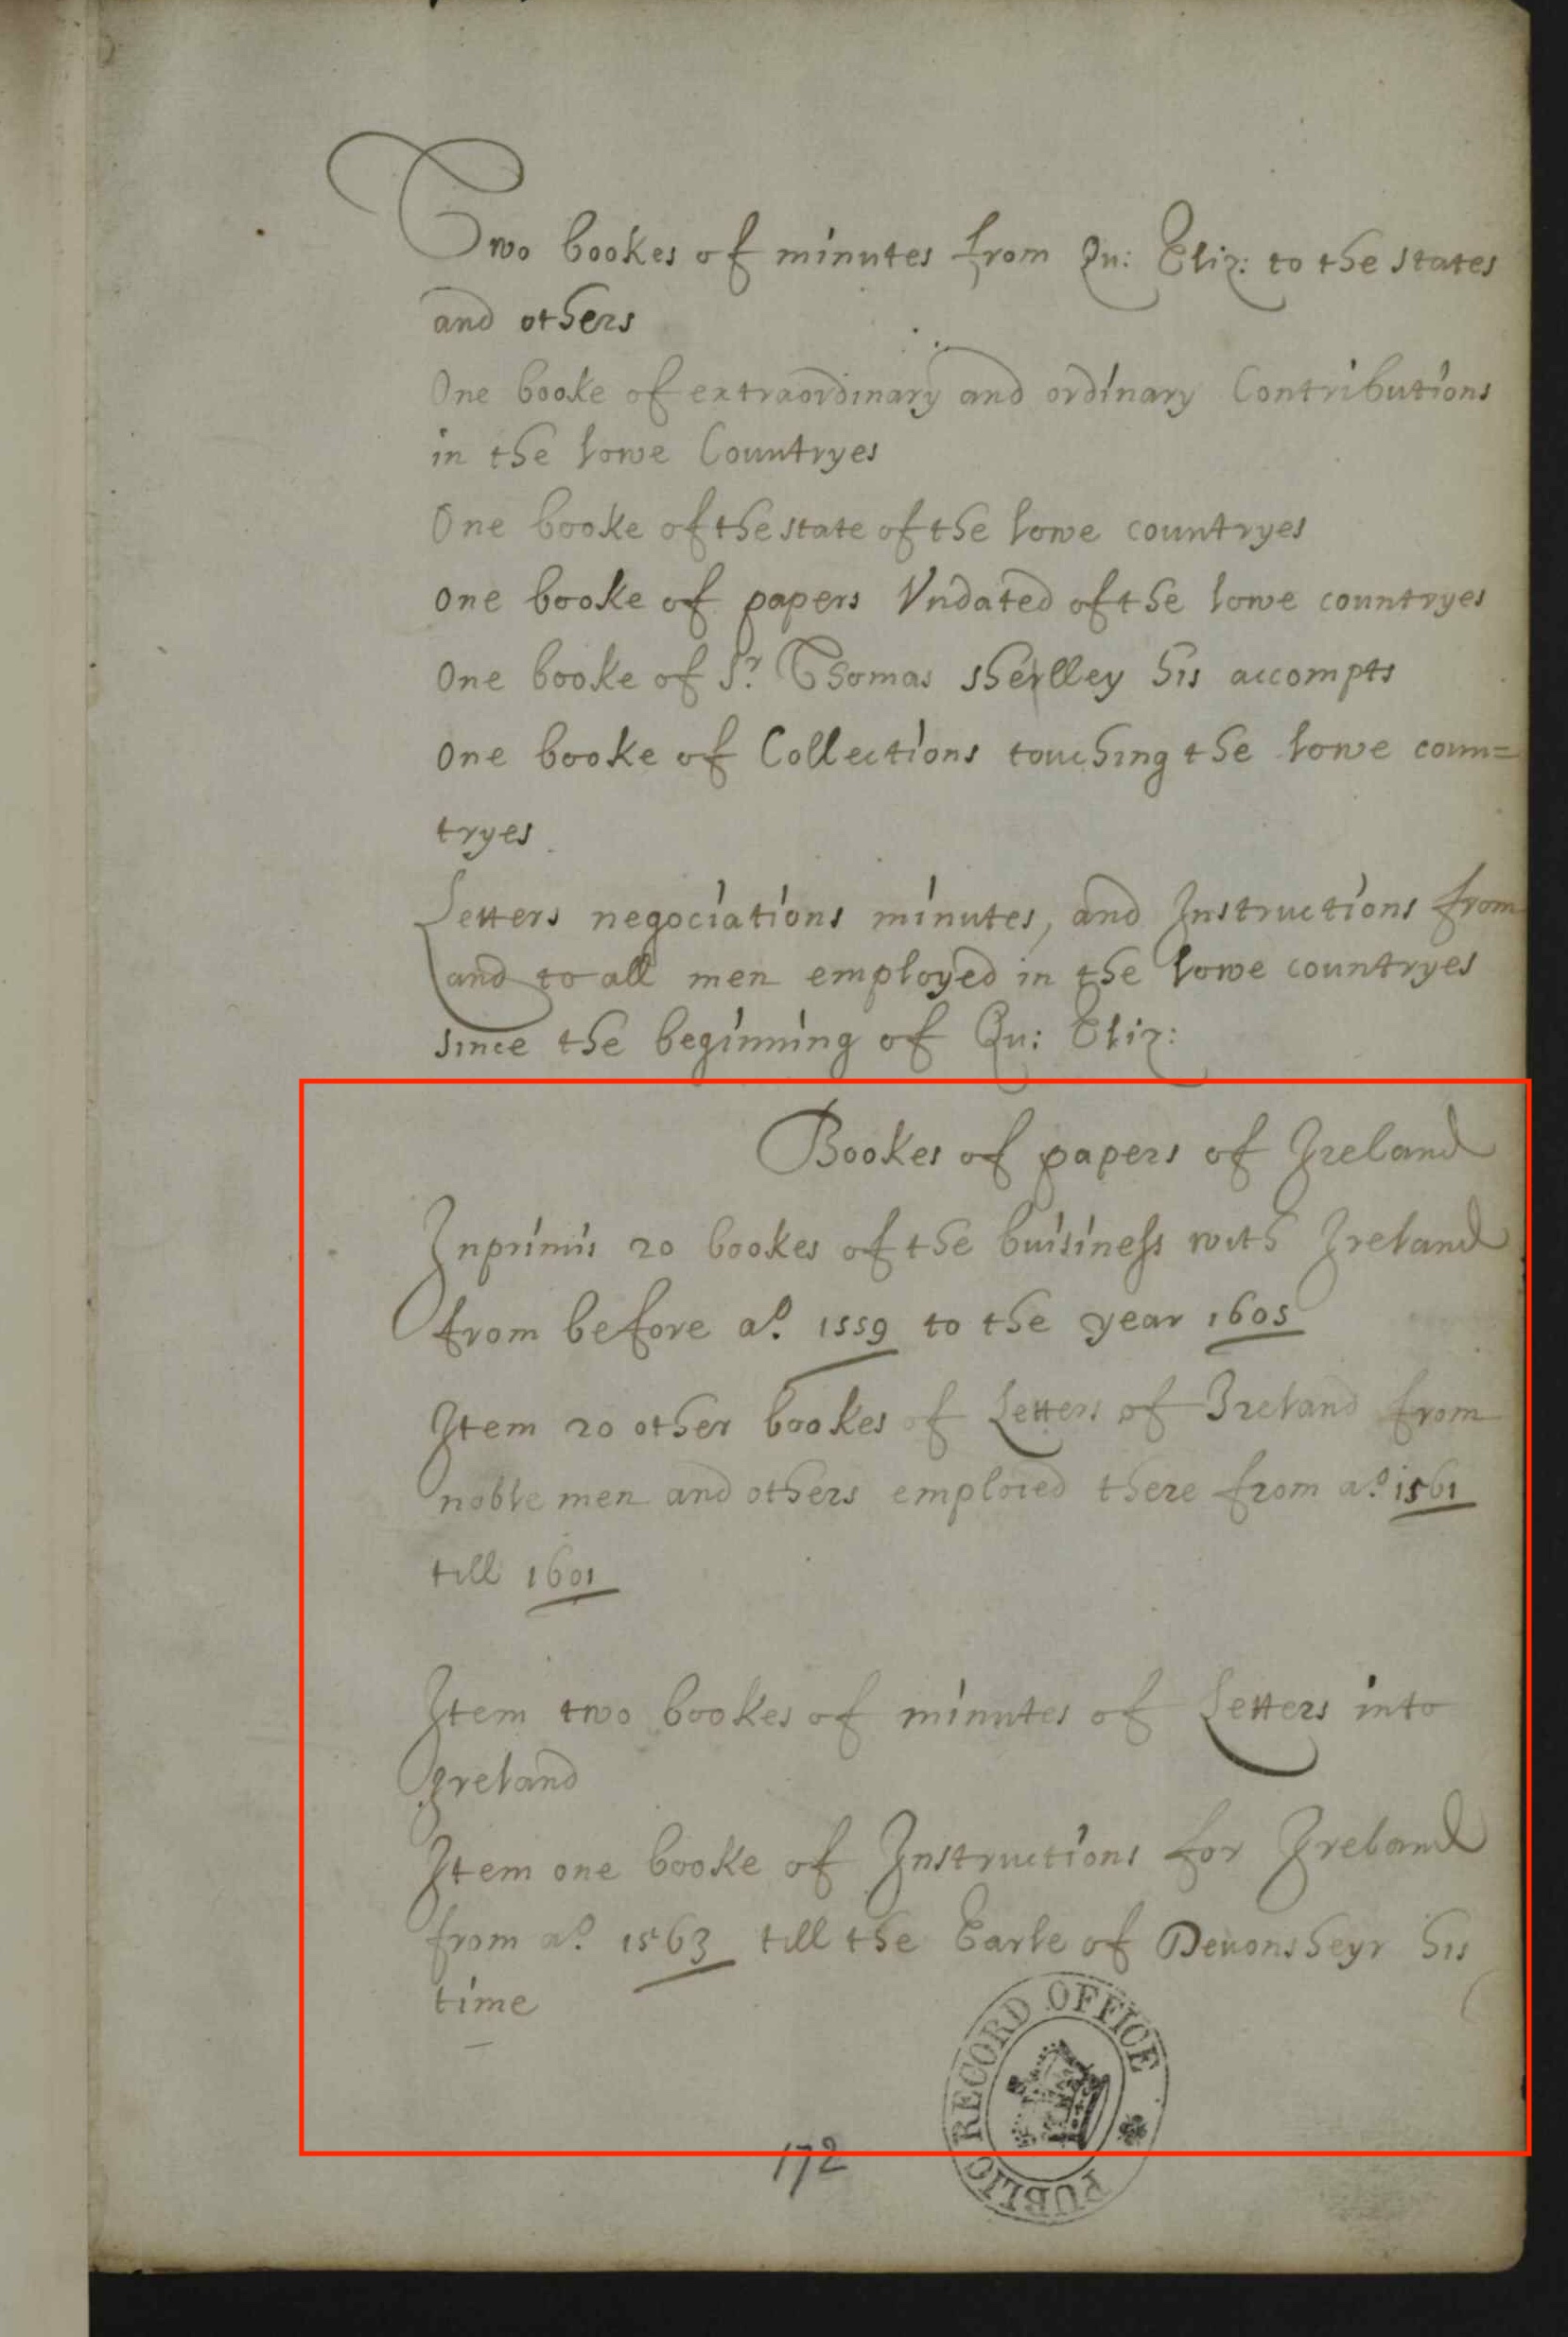 Two bookes of minutes from Qu: Eliz: to the states
and others
One booke of extraordinary and ordinary Contributions
in the lowe Countryes
One booke of the state of the lowe countryes
One booke of papers Vndated of the lowe countryes
One booke of Sr. Thomas sherlley his accompts
One booke of Collections touching the lowe coun=
tryes
Letters negociations minutes, and Instructions from
and to all men employed in the lowe countryes
since the beginning of Qu: Eliz:
Bookes of papers of Ireland
Inprimis 20 bookes of the buisiness with Ireland
from before ao. 1559 to the year 1605
Item 20 other bookes of Letters of Ireland from
noble men and others emploied there from ao. 1561
till 1601
Item two bookes of minutes of Letters into
Ireland
Item one booke of Instructions for Ireland
from ao. 1563 till the Earle of Deuonsheyr his
time
PUBLIC RECORD OFFICE
172